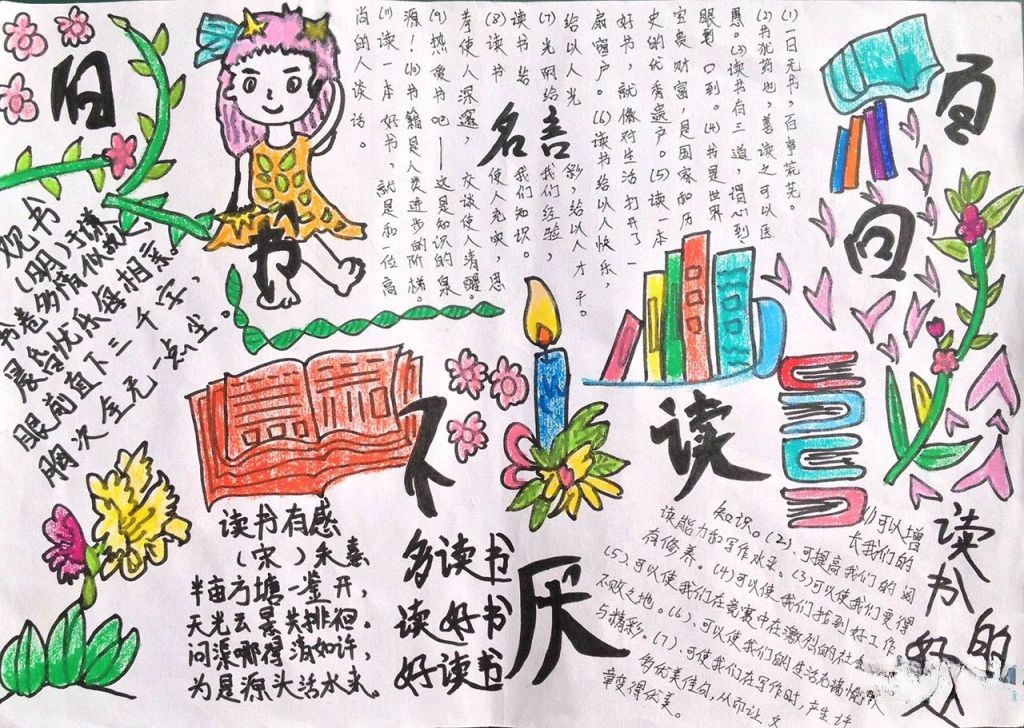 旧
书
不
厌
百
回
读
名言
(1)一日无书，百事荒芜。
(2)书犹药也，善读之可以医
愚。(3)读书有三道，谓心到
眼到口到。(4)书是世界
宝贵财富，是国家和历
史的优秀遗产。(5)读一本
好书，就像对生活打开了一
扇窗户。(6)读书给以人快乐，
给以人光彩，给以人才干。
(7)光阴给我们经验，
读书给我们知识。
(8)读书使人充实，思
考使人深邃，交谈使人清醒。
(9)热爱书吧——这是知识的泉
源！(10)书籍是人类进步的阶梯。
(11)读一本好书，就是和一位高
尚的人谈话。
观书
(明)于谦
书卷多情似故人，
晨昏忧乐每相亲。
眼前直下三千字，
胸次全无一点尘。
读书有感
(宋)朱熹
半亩方塘一鉴开，
天光云景共排徊。
问渠哪得清如许，
为是源头活水来。
多读书
读好书
好读书
读书的好处
(1)可以增
长我们的
知识。(2)、可提高我们的阅
读能力和写作水平。(3)可以使我们变得
有修养。(4)可以使我们找到好工作。
(5)、可以使我们在竞赛中在激烈的社会
不败之地。(6)、可以使我们的生活充满愉
与精彩。(7)、可使我们在写作时，产生好
多优美佳句，从而让文
章变得优美。